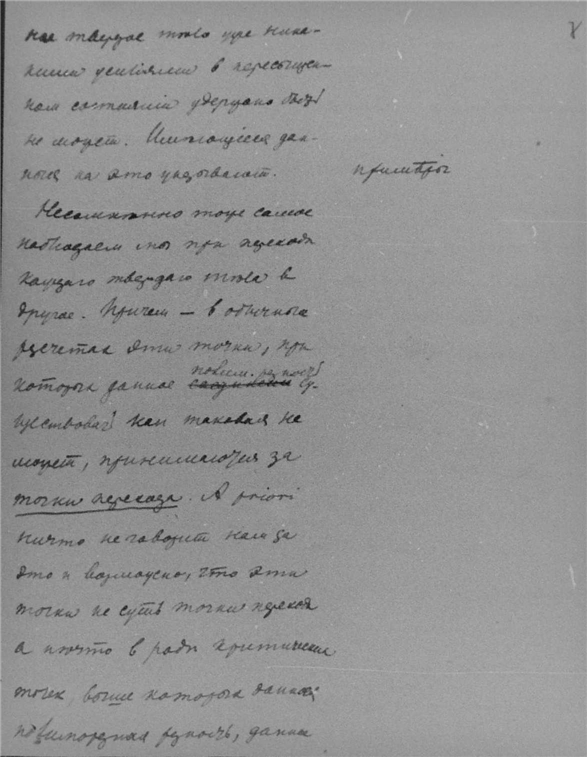 ное твердое тѣло уже ника-
кими усиліями в пересыщен-
ном состояніи удержано быть
не может. Имѣющіеся дан-
ныя на это указывают.
примѣры
Несомнѣнно тоже самое
наблюдаем мы при переходѣ
каждаго твердаго тѣла в
другое. Причем — в обычных
расчетах эти точки, при
которых данное полим. разность су-
ществовать как таковая не
может, принимаются за
точки перехода. A priori
ничто не говорит нам за
это и возможно, что эти
точки не суть точки перехода
а нѣчто в родѣ критических
точек, выше которых данная
полиморфная разность, данная